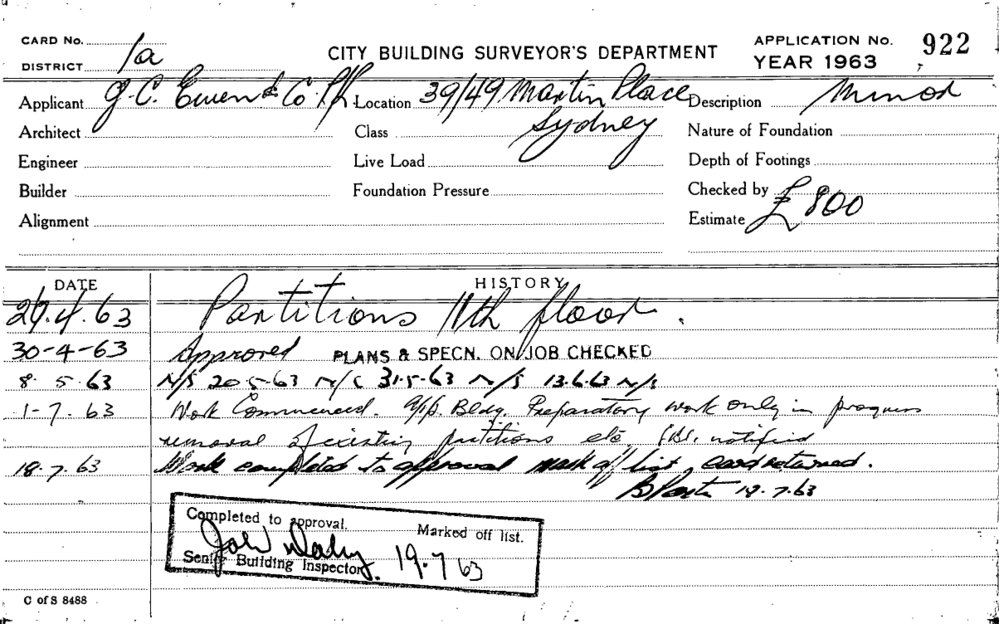 CARD No.
DISTRICT 1a
CITY BUILDING SURVEYOR'S DEPARTMENT
APPLICATION No. 922
YEAR 1963
Applicant J. C. Ewen & Co. P/L Location 39/49 Martin Place Description Minor
Architect Class Sydney Nature of Foundation
Engineer Live Load Depth of Footings
Builder Foundation Pressure Checked by
Alignment Estimate £800
DATE HISTORY
.4.63 Partitions 11th floor.
30-4-63 Approved PLANS & SPECN. ON JOB CHECKED
8. 5. 63 N/S 20-5-63 N/C 31-5-63 N/S 13.6.63 N/S
1-7. 63 Work Commenced. Bldg. Preparatory work only in progress
removal of existing partitions etc. notified
18.7.63 Work completed to approval mark off list, card returned.
18.7.63
Completed to approval. Marked off list.
19.7.63
Senior Building Inspector.
C of S 8488